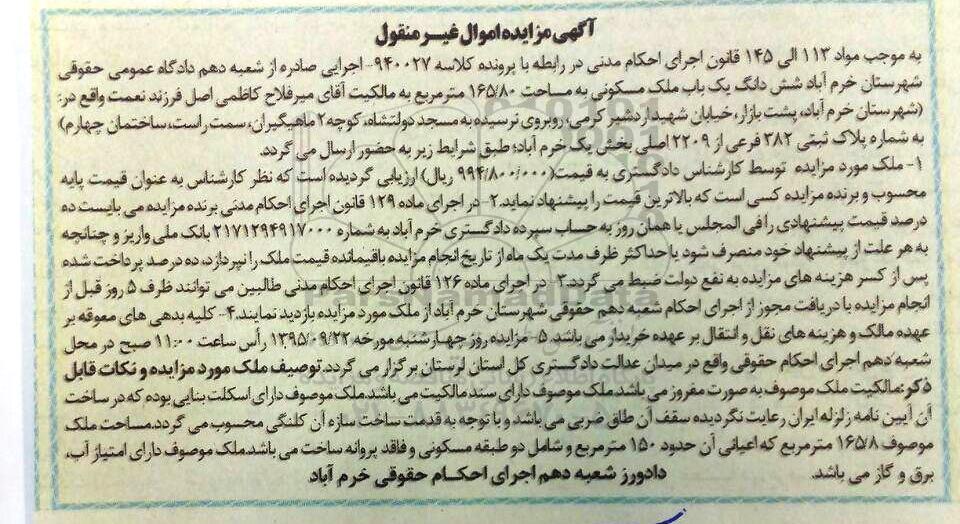 آگهی مزایده اموال غیر منقول
به موجب مواد ۱۱۳ الی ۱۴۵ قانون اجرای احکام مدنی در رابطه با پرونده کلاسه ۹۴۰۰۲۷- اجرایی صادره از شعبه دهم دادگاه عمومی حقوقی
شهرستان خرم آباد شش دانگ یک باب ملک مسکونی به مساحت ۱۶۵/۸۰ مترمربع به مالکیت آقای میرفلاح کاظمی اصل فرزند نعمت واقع در:
(شهرستان خرم آباد، پشت بازار، خیابان شهید اردشیر کرمی، روبروی نرسیده به مسجد دولتشاه، کوچه ۲ ماهیگیران، سمت راست، ساختمان چهارم)
به شماره پلاک ثبتی ۳۸۲ فرعی از ۲۲۰۹ اصلی بخش یک خرم آباد؛ طبق شرایط زیر به حضور ارسال می گردد.
۱- ملک مورد مزایده توسط کارشناس دادگستری به قیمت (۹۹۴/۸۰۰/۰۰۰ ریال) ارزیابی گردیده است که نظر کارشناس به عنوان قیمت پایه
محسوب و برنده مزایده کسی است که بالاترین قیمت را پیشنهاد نماید. ۲- در اجرای ماده ۱۲۹ قانون اجرای احکام مدنی برنده مزایده می بایست ده
درصد قیمت پیشنهادی را فی المجلس یا همان روز به حساب سپرده دادگستری خرم آباد به شماره ۲۱۷۱۲۹۴۹۱۷۰۰۰ بانک ملی واریز و چنانچه
به هر علت از پیشنهاد خود منصرف شود یا حداکثر ظرف مدت یک ماه از تاریخ انجام مزایده باقیمانده قیمت ملک را نپردازد، ده درصد پرداخت شده
پس از کسر هزینه های مزایده به نفع دولت ضبط می گردد. ۳- در اجرای ماده ۱۲۶ قانون اجرای احکام مدنی طالبین می توانند ظرف ۵ روز قبل از
انجام مزایده با دریافت مجوز از اجرای احکام شعبه دهم حقوقی شهرستان خرم آباد از ملک مورد مزایده بازدید نمایند. ۴- کلیه بدهی های معوقه بر
عهده مالک و هزینه های نقل و انتقال بر عهده خریدار می باشد. ۵- مزایده روز چهارشنبه، مورخه ۱۳۹۵/۰۹/۲۲ رأس ساعت ۱۱:۰۰ صبح در محل
شعبه دهم اجرای احکام حقوقی واقع در میدان عدالت دادگستری کل استان لرستان برگزار می گردد. توصیف ملک مورد مزایده و نکات قابل
ذکر: مالکیت ملک موصوف به صورت مفروز می باشد. ملک موصوف دارای سند مالکیت می باشد. ملک موصوف دارای اسکلت بنایی بوده که در ساخت
آن آیین نامه زلزله ایران رعایت نگردیده سقف آن طاق ضربی می باشد و با توجه به قدمت ساخت سازه آن کلنگی محسوب می گردد. مساحت ملک
موصوف ۱۶۵/۸ مترمربع که اعیانی آن حدود ۱۵۰ مترمربع و شامل دو طبقه مسکونی و فاقد پروانه ساخت می باشد. ملک موصوف دارای امتیاز آب،
برق و گاز می باشد.
دادورز شعبه دهم اجرای احکام حقوقی خرم آباد
ParsNamadData